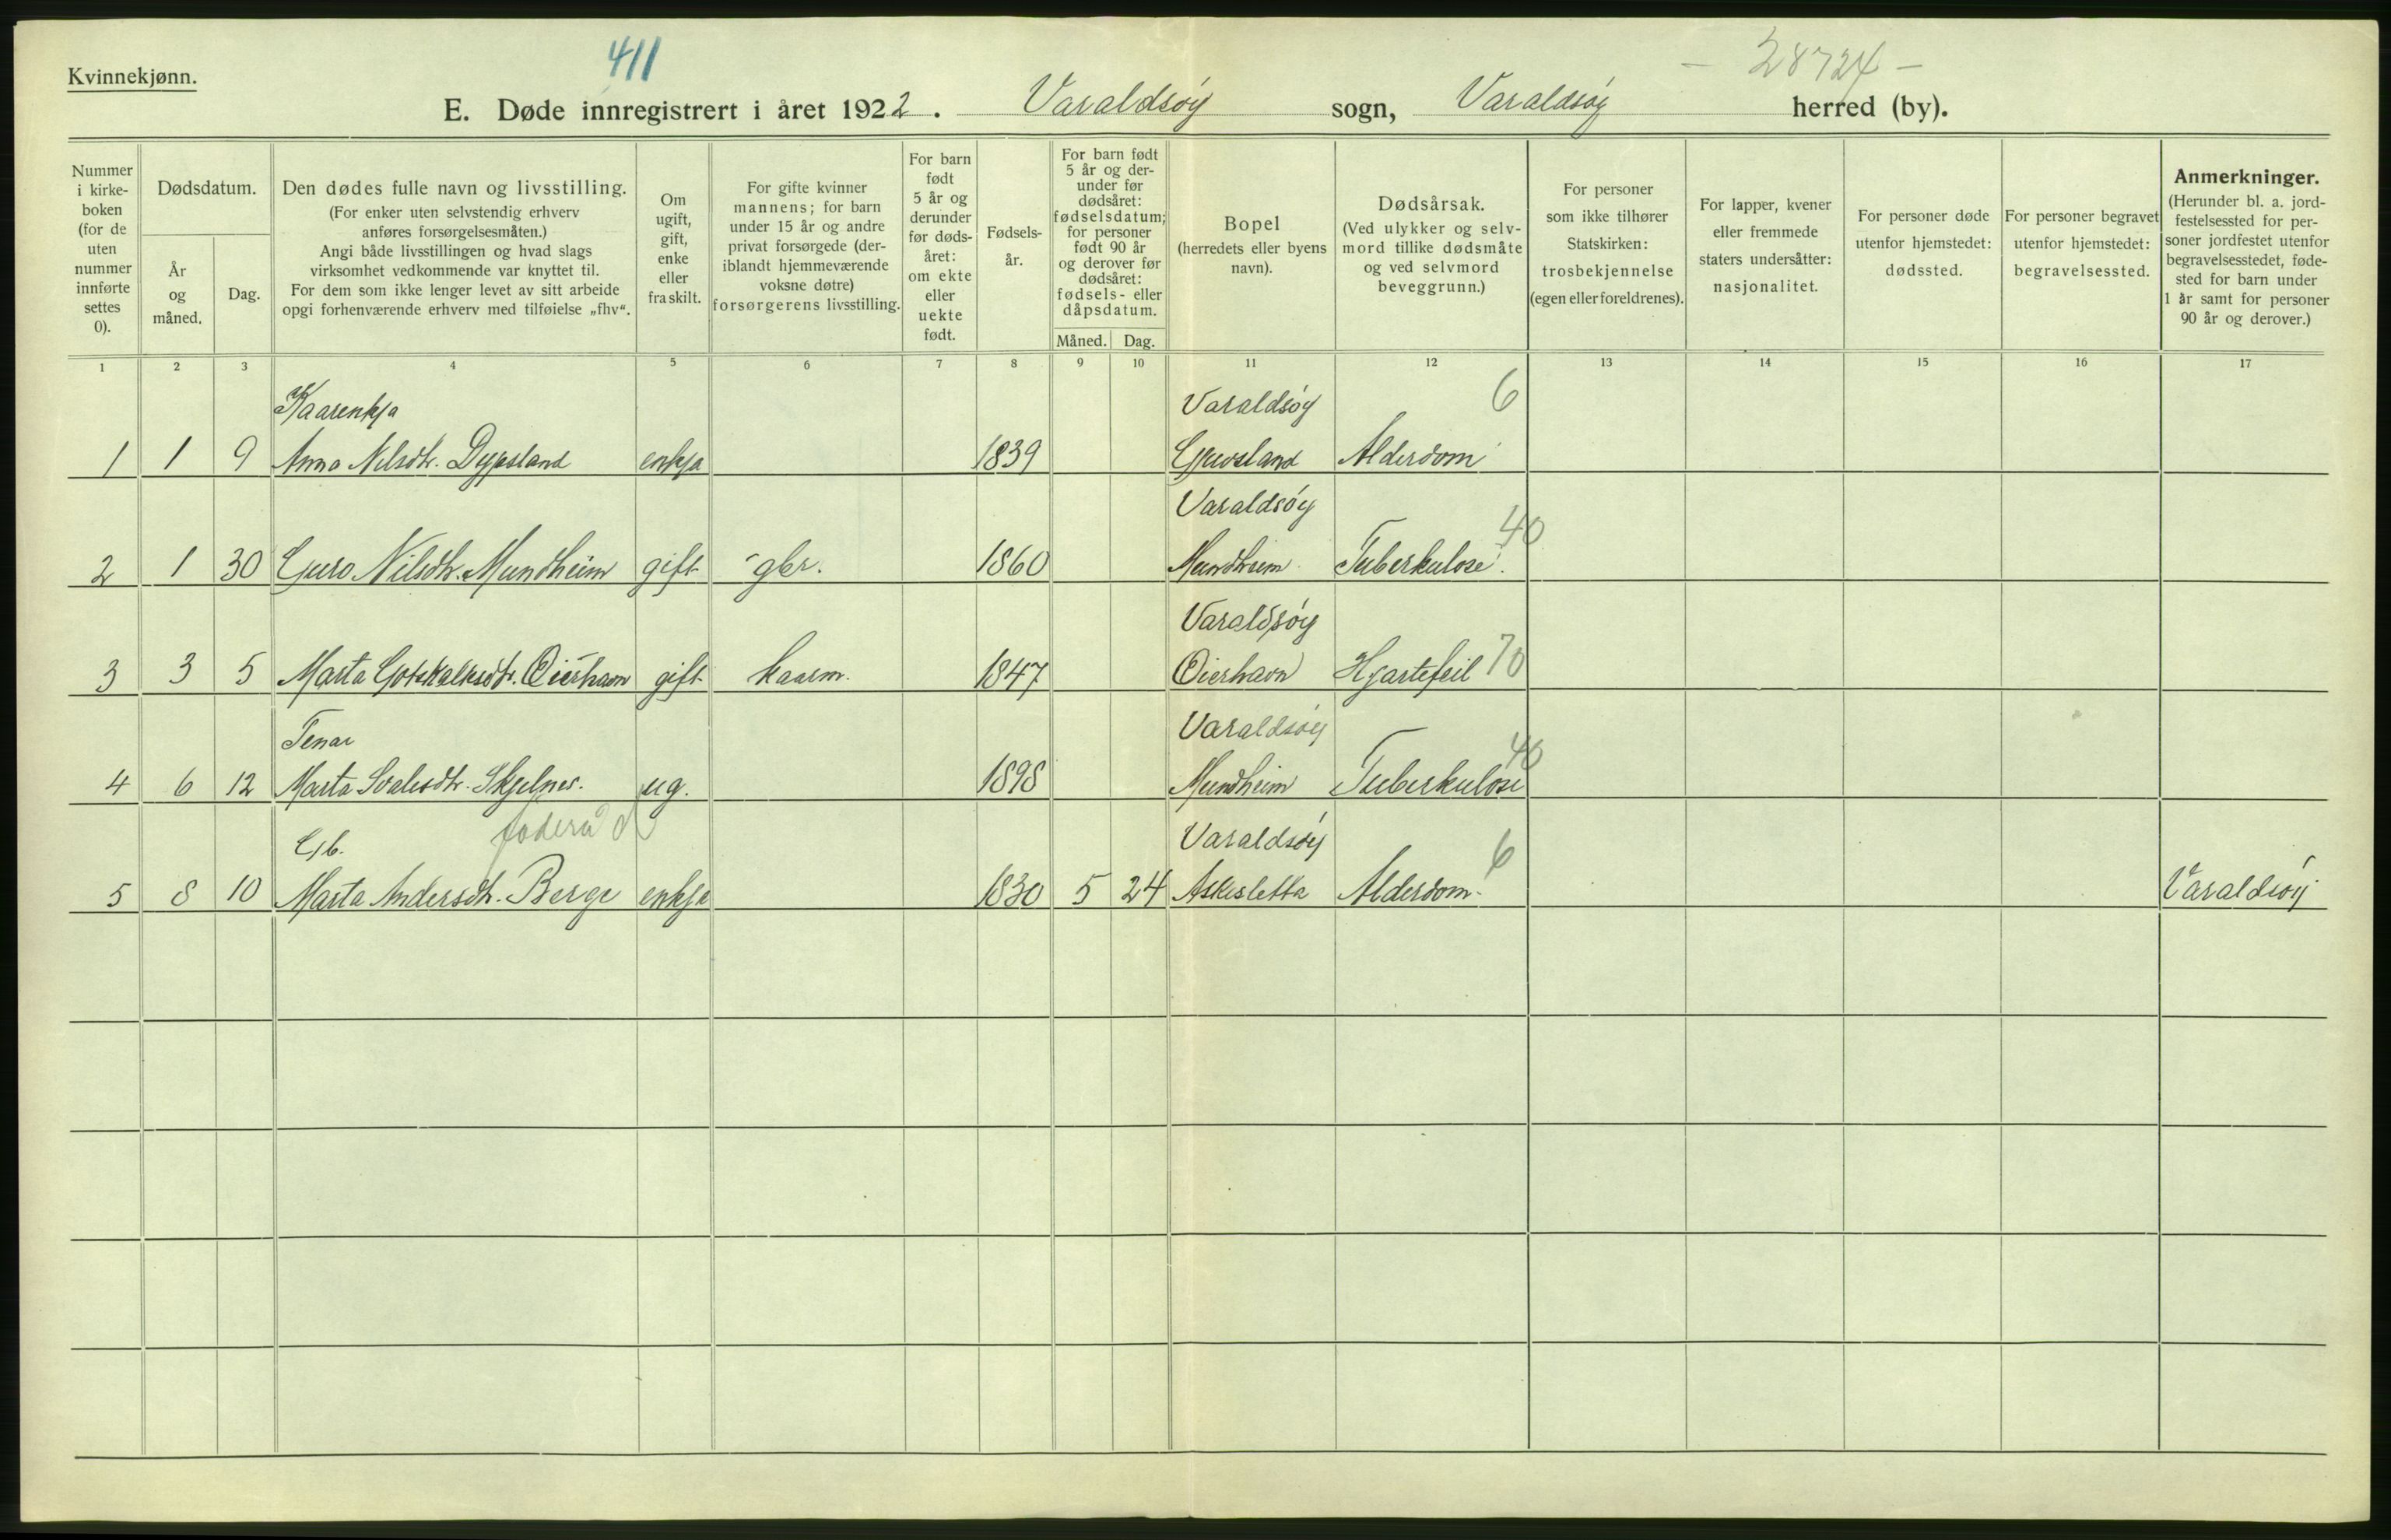 Kvinnekjønn.
411
- 28724 -
E. Døde innregistrert i året 1922. Varaldsöy sogn, Varaldsöy herred (by).
Nummer
i kirke-
boken
(for de
uten
nummer
innførte
settes
0).
Dødsdatum.
År
og
måned.
Dag.
Den dødes fulle navn og livsstilling.
(For enker uten selvstendig erhverv
anføres forsørgelsesmåten.)
Angi både livsstillingen og hvad slags
virksomhet vedkommende var knyttet til.
For dem som ikke lenger levet av sitt arbeide
opgi forhenværende erhverv med tilføielse „fhv“.
Om
ugift,
gift,
enke
eller
fraskilt.
For gifte kvinner
mannens; for barn
under 15 år og andre
privat forsørgede (der-
iblandt hjemmeværende
voksne døtre)
forsørgerens livsstilling.
For barn
født
5 år og
derunder
før døds-
året:
om ekte
eller
uekte
født.
Fødsels-
år.
For barn født
5 år og der-
under før
dødsåret:
fødselsdatum;
for personer
født 90 år
og derover før
dødsåret:
fødsels- eller
dåpsdatum.
Måned. Dag.
Bopel
(herredets eller byens
navn).
Dødsårsak.
(Ved ulykker og selv-
mord tillike dødsmåte
og ved selvmord
beveggrunn.)
For personer
som ikke tilhører
Statskirken:
trosbekjennelse
(egen eller foreldrenes).
For lapper, kvener
eller fremmede
staters undersåtter:
nasjonalitet.
For personer døde
utenfor hjemstedet:
dødssted.
For personer begravet
utenfor hjemstedet:
begravelsessted.
Anmerkninger.
(Herunder bl. a. jord-
festelsessted for per-
soner jordfestet utenfor
begravelsesstedet, føde-
sted for barn under
1 år samt for personer
90 år og derover.)
1 2 3 4 5 6 7 8 9 10 11 12 13 14 15 16 17
Kaarenkja Varaldsöy 6
1 1 9 Anna Nilsdtr. Dypsland enkja 1839 Alderdom
Varaldsöy 40
2 1 30 Guro Nilsdtr. Mundheim gift gbr. 1860 Mundheim Tuberkulose.
Varaldsöy
3 3 5 Marta Gotskalksdtr. Öierhavn gift kaarm. 1847 Öierhavn Hjartefeil 70
Tenar Varaldsöy 40
4 6 12 Marta Svalesdtr. Skjelnes. ug. 1898 Mundheim Tuberkulose
Gb. Varaldsöy 6
5 8 10 Marta Andersdtr. Berge enkja 1830 5 24 Askesletta Alderdom. Varaldsöy